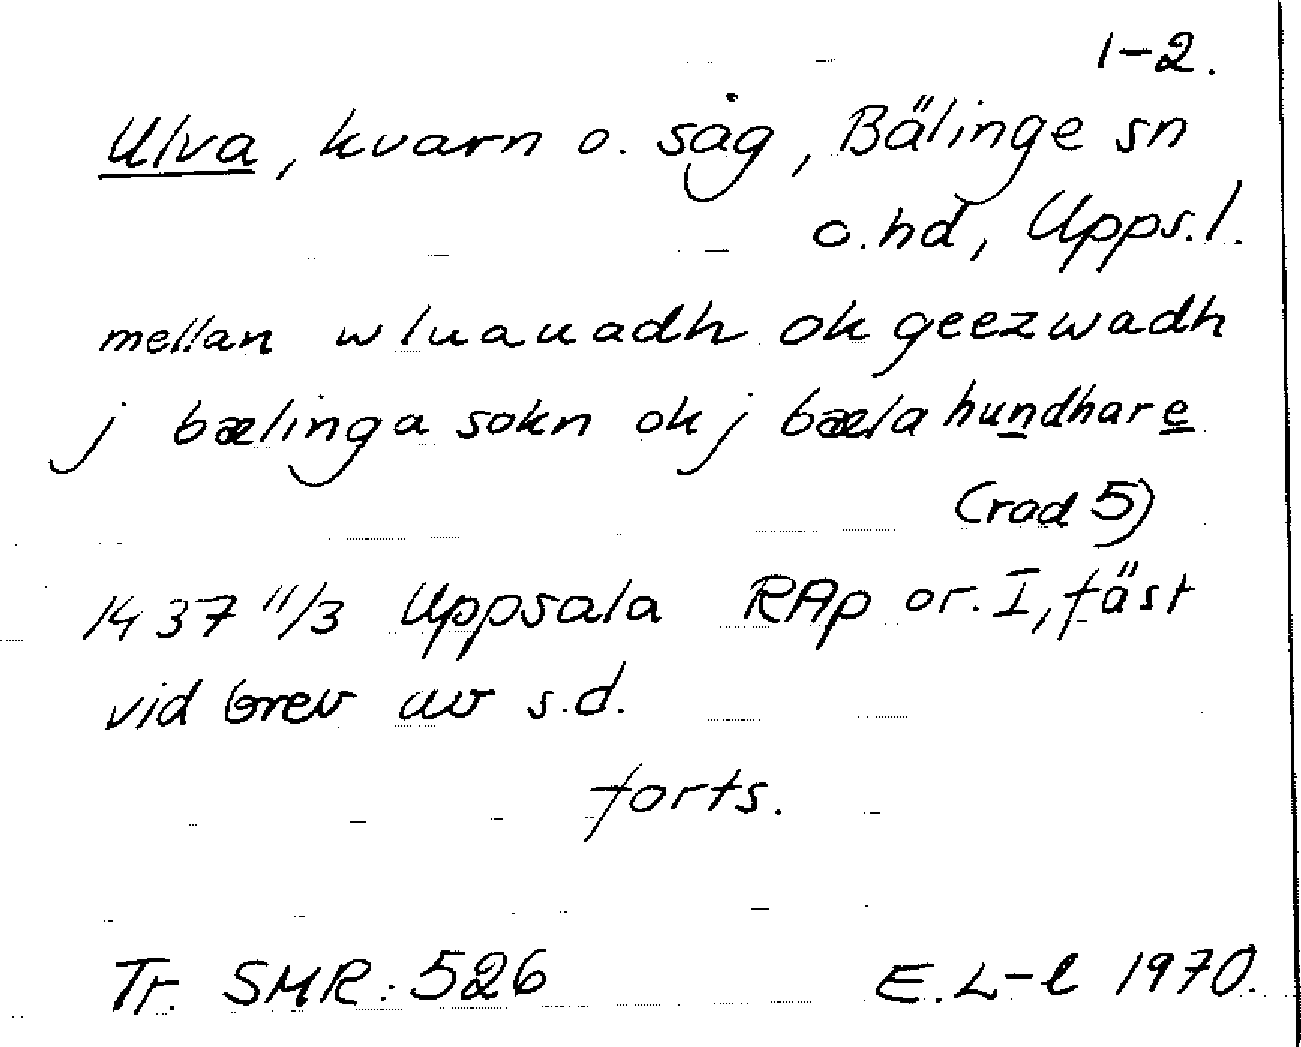 1-2.
Ulva, kvarn o. såg, Bälinge sn
o. hd, Upps. l.
mellan wluauadh ok geezwadh
j bælinga sokn ok j bæla hundhare
(rad 5)
1437 11/3 Uppsala RAp or. I, fäst
vid brev av s.d.
forts.
Tr. SMR: 526 E. L-l 1970.